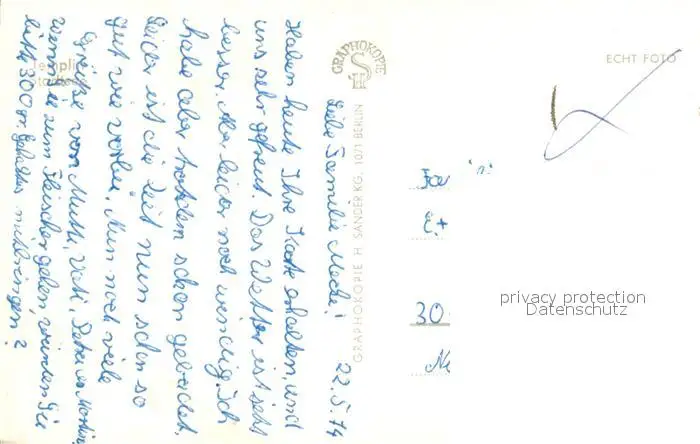 22. 5. 74
Liebe Familie
Haben heute Ihre Karte erhalten, und
uns sehr gefreut. Das Wetter ist jetzt
besser, aber leider noch windig. Ich
habe aber trotzdem schon gebadet.
Leider ist die Zeit nun schon so
gut wie vorbei. Nun noch viele
Grüße von Mutti, Vati,
wenn Sie zum Fleischer gehen, würden Sie
bitte 300 gr. mitbringen?
Templin
GRAPHOKOPIE
H S
GRAPHOKOPIE H. SANDER KG. 1071 BERLIN
ECHT FOTO
30
privacy protection
Datenschutz